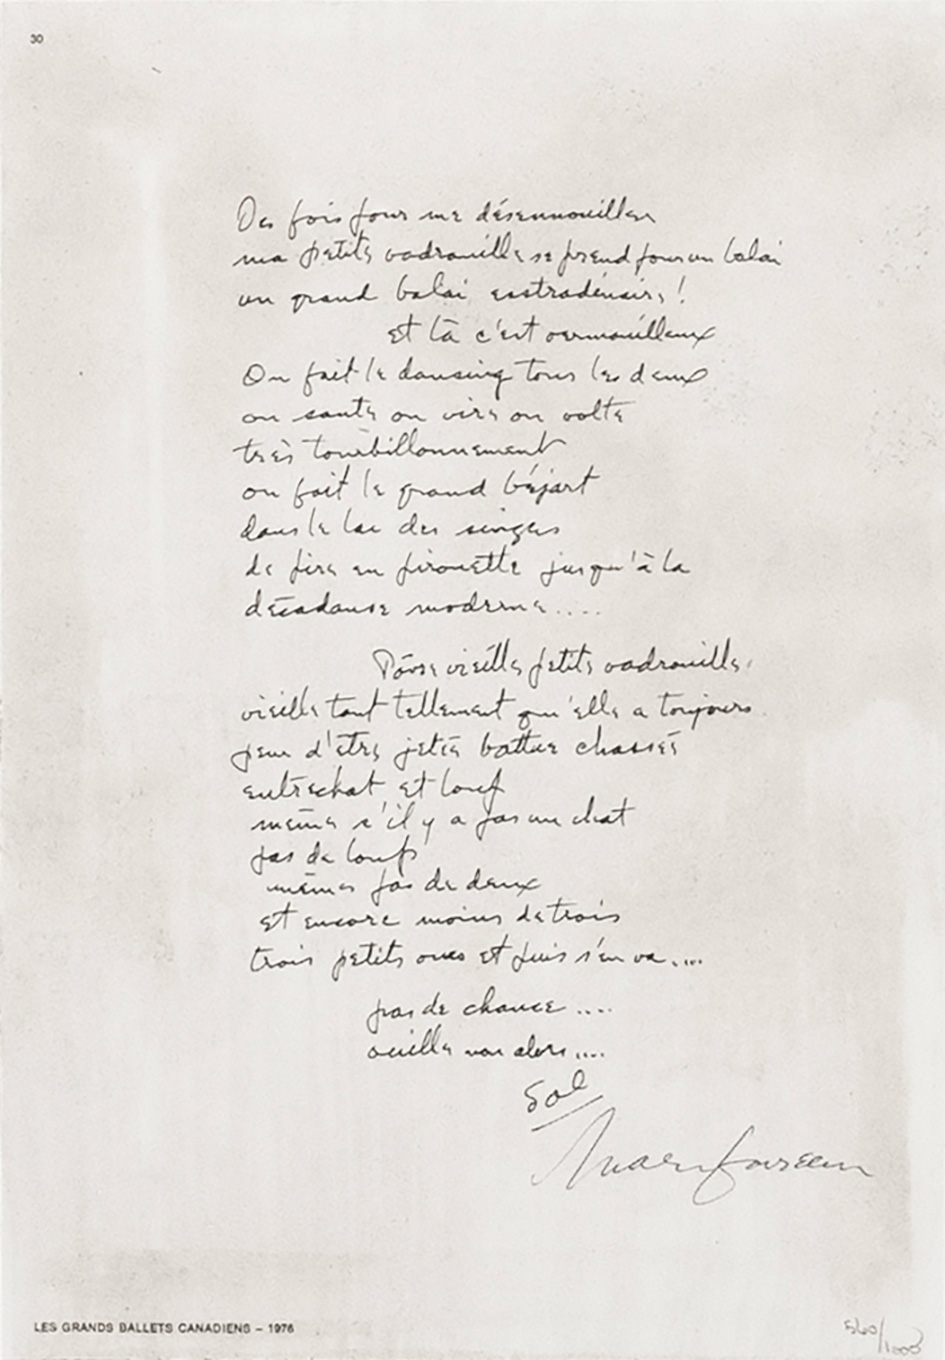 30
Des fois pour me désennouiller
ma petite vadrouille se prend pour un balai
un grand balai esstradénaire!
et là c'est vermouilleux
On fait le dansing tous les deux
on saute on vire on volte
très tourbillonnement
on fait le grand béjart
dans le lac des singes
de pire en pirouette jusqu'à la
décadanse moderne....
Pôvre vieille petite vadrouille,
vieille tant tellement qu'elle a toujours
peur d'être jetée battue chassée
entrechat et loup
même s'il y a pas un chat
pas de loup
même pas de deux
et encore moins de trois
trois petits oues et puis s'en va....
pas de chance....
ouille non alors....
Sol
Marc Favreau
LES GRANDS BALLETS CANADIENS – 1976
560/1000